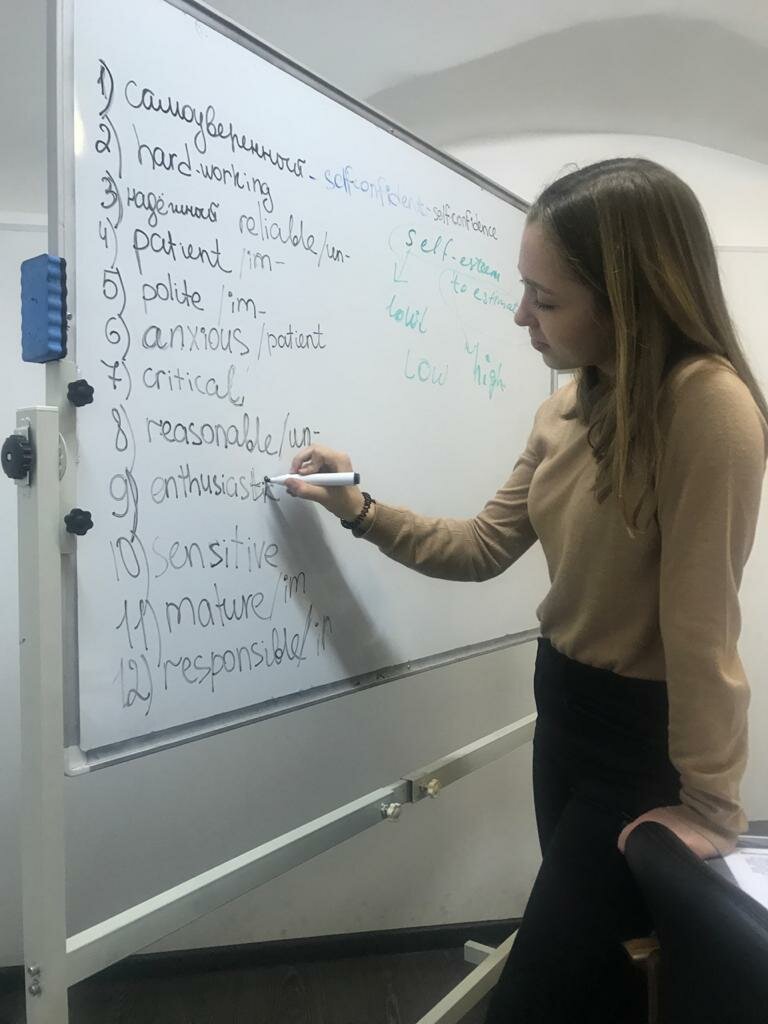 1) самоуверенный - self-confident - self-confidence
2) hard-working
3) надёжный reliable/un-
4) patient/im-
5) polite/im-
6) anxious/patient
7) critical
8) reasonable/un-
9) enthusiastic
10) sensitive
11) mature/im
12) responsible/ir
self-esteem
to estimat
LOW
high